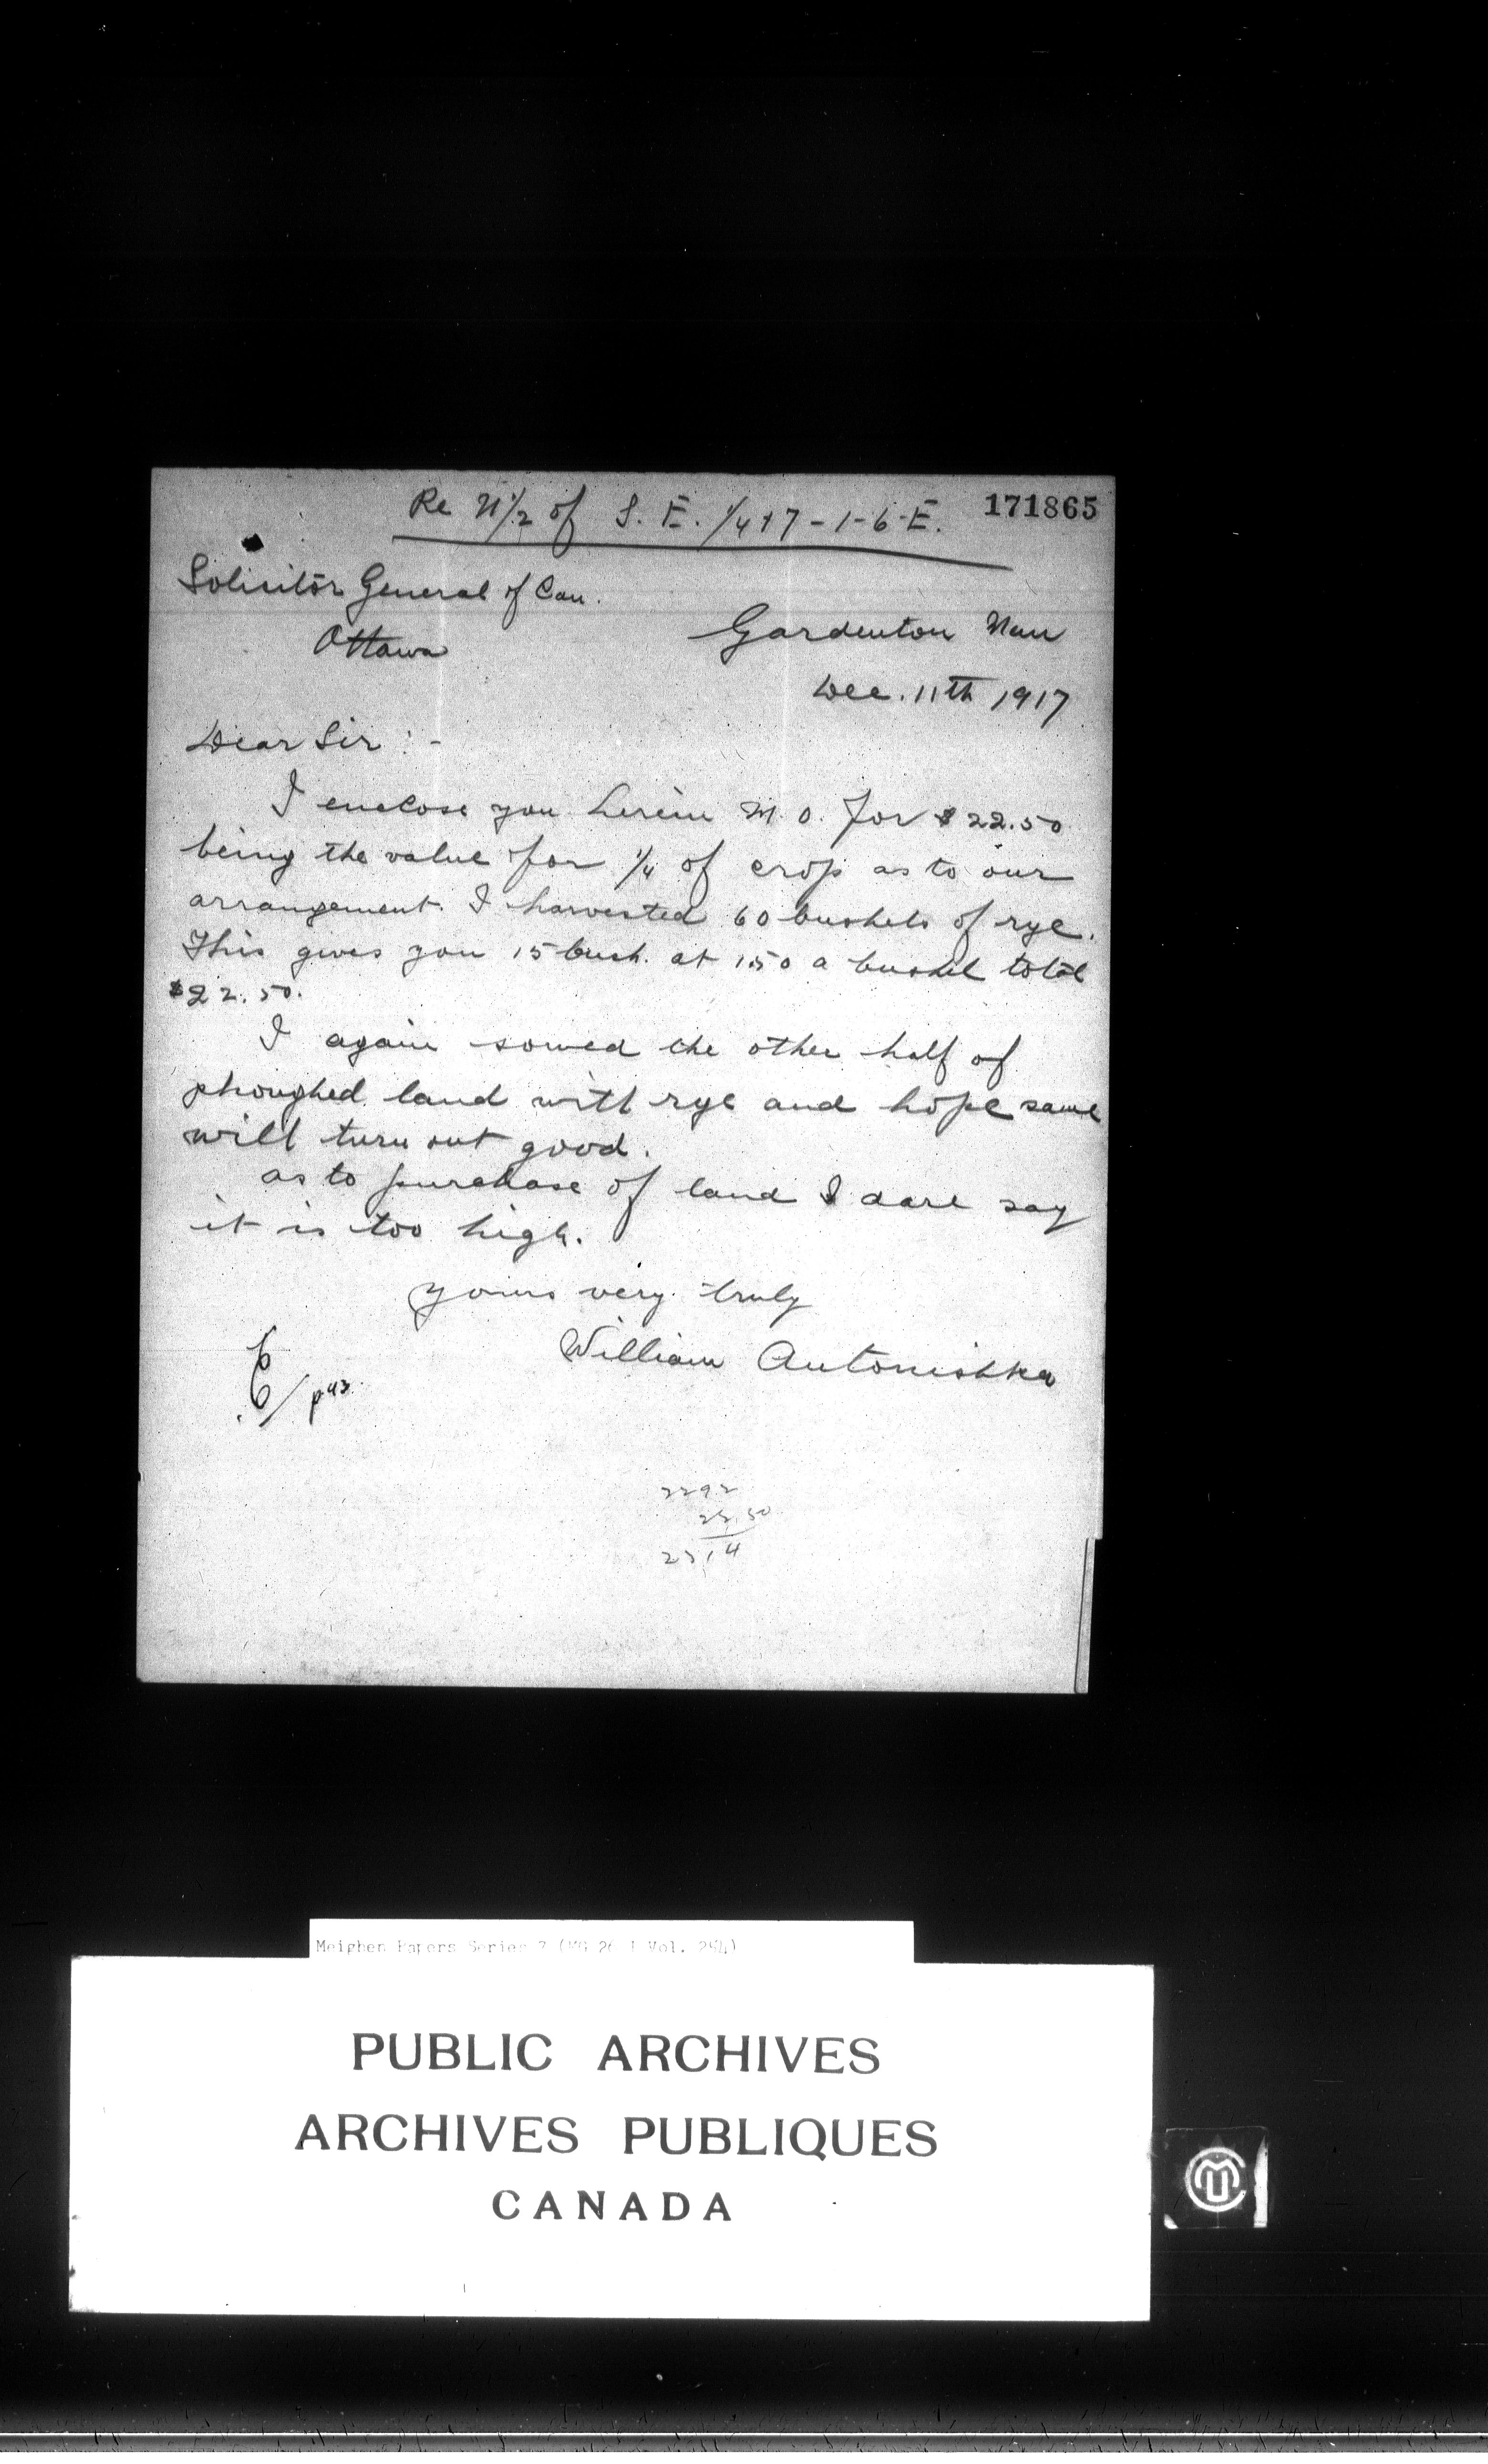 Re N 1/2 of S. E. 1/4 17-1-6-E. 171865
Solicitor General of Can.
Ottawa
Gardenton Man
Dec. 11th 1917
Dear Sir :-
I enclose you herein M. O. for $22.50
being the value for 1/4 of crop as to our
arrangement. I harvested 60 bushels of rye.
This gives you 15 bush. at 1.50 a bushel total
$22.50.
I again sowed the other half of
ploughed land with rye and hope same
will turn out good.
as to purchase of land I dare say
it is too high.
yours very truly
William Antonishka
2292
22.50
Meighen Papers Series 7 (MG 26 I Vol. 254)
PUBLIC ARCHIVES
ARCHIVES PUBLIQUES
CANADA